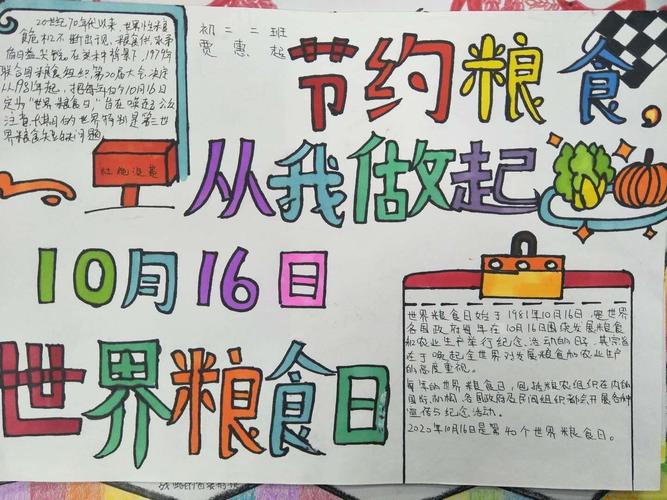 20世纪70年代以来,世界性粮
食危机不断出现,粮食供求矛
盾日益尖锐。在这种背景下,1979年
联合国粮食组织第20届大会决定
从1981年起,把每年的10月16日
定为"世界粮食日,"旨在唤起公众
注意长期的世界特别是第三世
界粮食短缺问题。
初一二班
贾惠
节约粮食,
从我做起
杜绝浪费
10月16日
世界粮食日
世界粮食日始于1981年10月16日,是世界
各国政府每年在10月16日围绕发展粮食
和农业生产举行纪念活动的日子,其宗旨
在于唤起全世界对发展粮食和农业生产
的高度重视。
每年的世界粮食日,包括粮农组织在内的
国际机构、各国政府及民间组织都会开展各种
宣传与纪念活动。
2020年10月16日是第40个世界粮食日。